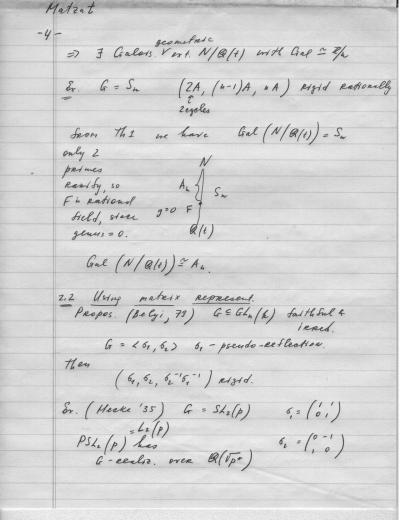 Matzat
-4-
geometric
⇒ ∃ Galois ∨ ext. N/Q(t) with Gal ≃ Z/n
Ex. G = Sn (2A, (n-1)A, nA) rigid rationally
↑
2cycles
from Th1 we have Gal(N/Q(t)) = Sn
only 2
primes
ramify, so
F is rational
field, since
genus = 0.
N
An { Sn
g=0 F
Q(t)
Gal(N/Q(t)) ≃ An.
2.2 Using matrix represent.
Propos. (Belyi, 79) G ≤ GLn(k) faithful &
irred.
G = <σ1, σ2> σ1 - pseudo-reflection.
Then
(σ1, σ2, σ2⁻¹σ1⁻¹) rigid.
Ex. (Hecke '35) G = SL2(p) σ1 = (1 1
0 1)
= L2(p)
PSL2(p) has σ2 = (0 -1
1 0)
G-realiz. over Q(√p*)